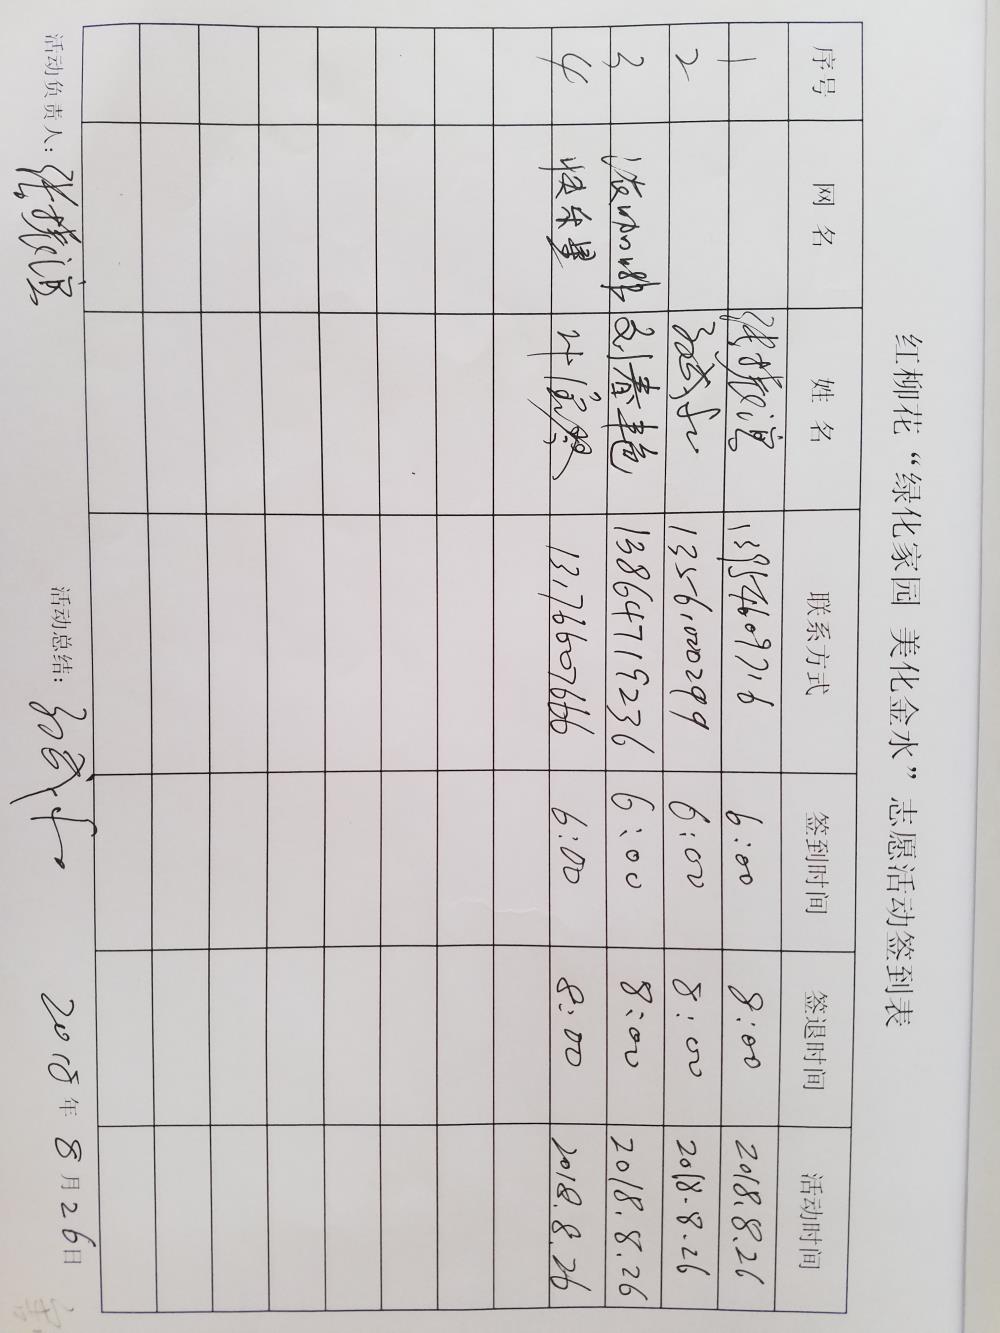 红柳花“绿化家园 美化金水”志愿活动签到表
序号 网名 姓名 联系方式 签到时间 签退时间 活动时间
1 张振滨 13954609716 6:00 8:00 2018.8.26
2 13561000299 6:00 8:00 2018.8.26
3 刘春艳 13864719236 6:00 8:00 2018.8.26
4 快乐星 13176607666 6:00 8:00 2018.8.26
活动负责人：张振滨 活动总结： 2018年8月26日